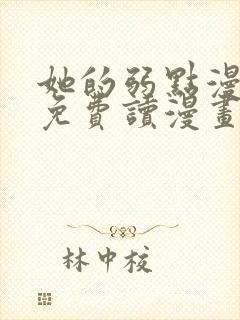 她的弱點漫
免費讀漫畫
林中校